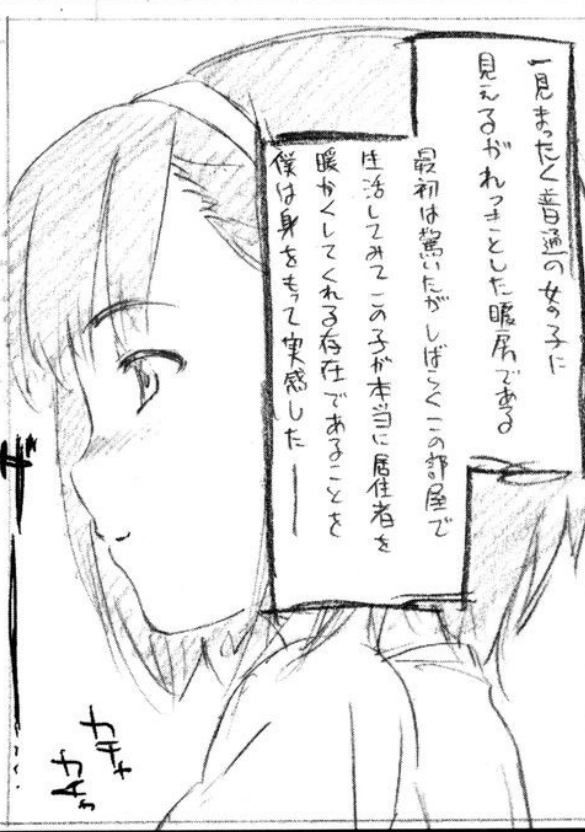 一見まったく普通の女の子に
見えるがれっきとした暖房である
最初は驚いたがしばらくこの部屋で
生活してみてこの子が本当に居住者を
暖かくしてくれる存在であることを
僕は身をもって実感した――
カチャ
カチャ